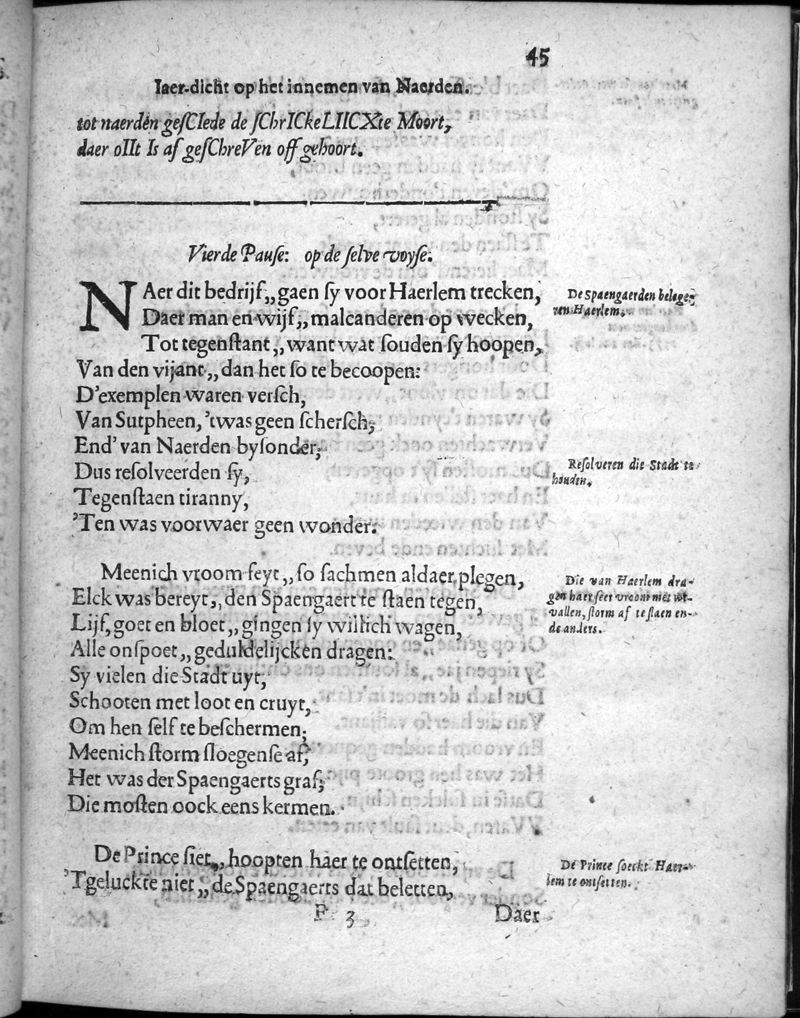 45
Iaer-dicht op het innemen van Naerden.
tot naerden geſCIede de ſChrICkeLIICXte Moort,
daer oIIt Is af geſChreVen off gehoort.
Vierde Pauſe: op de ſelve voyſe.
NAer dit bedrijf,, gaen ſy voor Haerlem trecken,
De Spaengaerden belege-
Daer man en wijf,, malcanderen op wecken,
ren Haerlem.
Tot tegenſtant,, want wat ſouden ſy hoopen,
Van den vijant,, dan het ſo te becoopen:
D'exemplen waren verſch,
Van Sutpheen, 'twas geen ſcherſch,
End' van Naerden byſonder,
Dus reſolveerden ſy,
Reſolveren die Stadt te
houden.
Tegenſtaen tiranny,
'Ten was voorwaer geen wonder.
Meenich vroom feyt,, ſo ſachmen aldaer plegen,
Die van Haerlem dra-
Elck was bereyt,, den Spaengaert te ſtaen tegen,
gen haer ſeer vroom met wt-
Lijf, goet en bloet,, gingen ſy willich wagen,
vallen, ſtorm af te ſlaen en-
Alle onſpoet,, geduldelijcken dragen:
de anders.
Sy vielen die Stadt uyt,
Schooten met loot en cruyt,
Om hen ſelf te beſchermen,
Meenich ſtorm ſloegenſe af,
Het was der Spaengaerts graf,
Die moſten oock eens kermen.
De Prince ſiet,, hoopten haer te ontſetten,
De Prince ſoeckt Haer-
'Tgeluckte niet,, de Spaengaerts dat beletten,
lem te ontſetten.
P 3 Daer